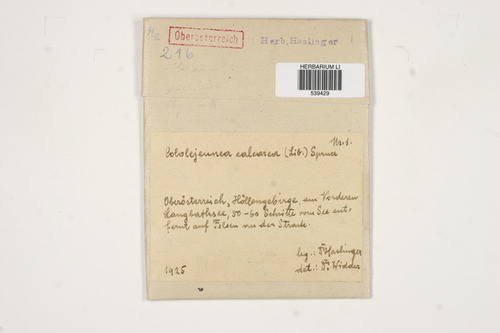 Oberösterreich
Herb. Haslinger
216
HERBARIUM LI
539429
Nr. 1.
Cololejeunea calcarea (Lib.) Spruce
Oberösterreich, Höllengebirge, am Vorderen
Langbathsee, 50-60 Schritte vom See ent-
fernt auf Felsen an der Straße.
leg.: Haslinger
det.: F. Widder
1925